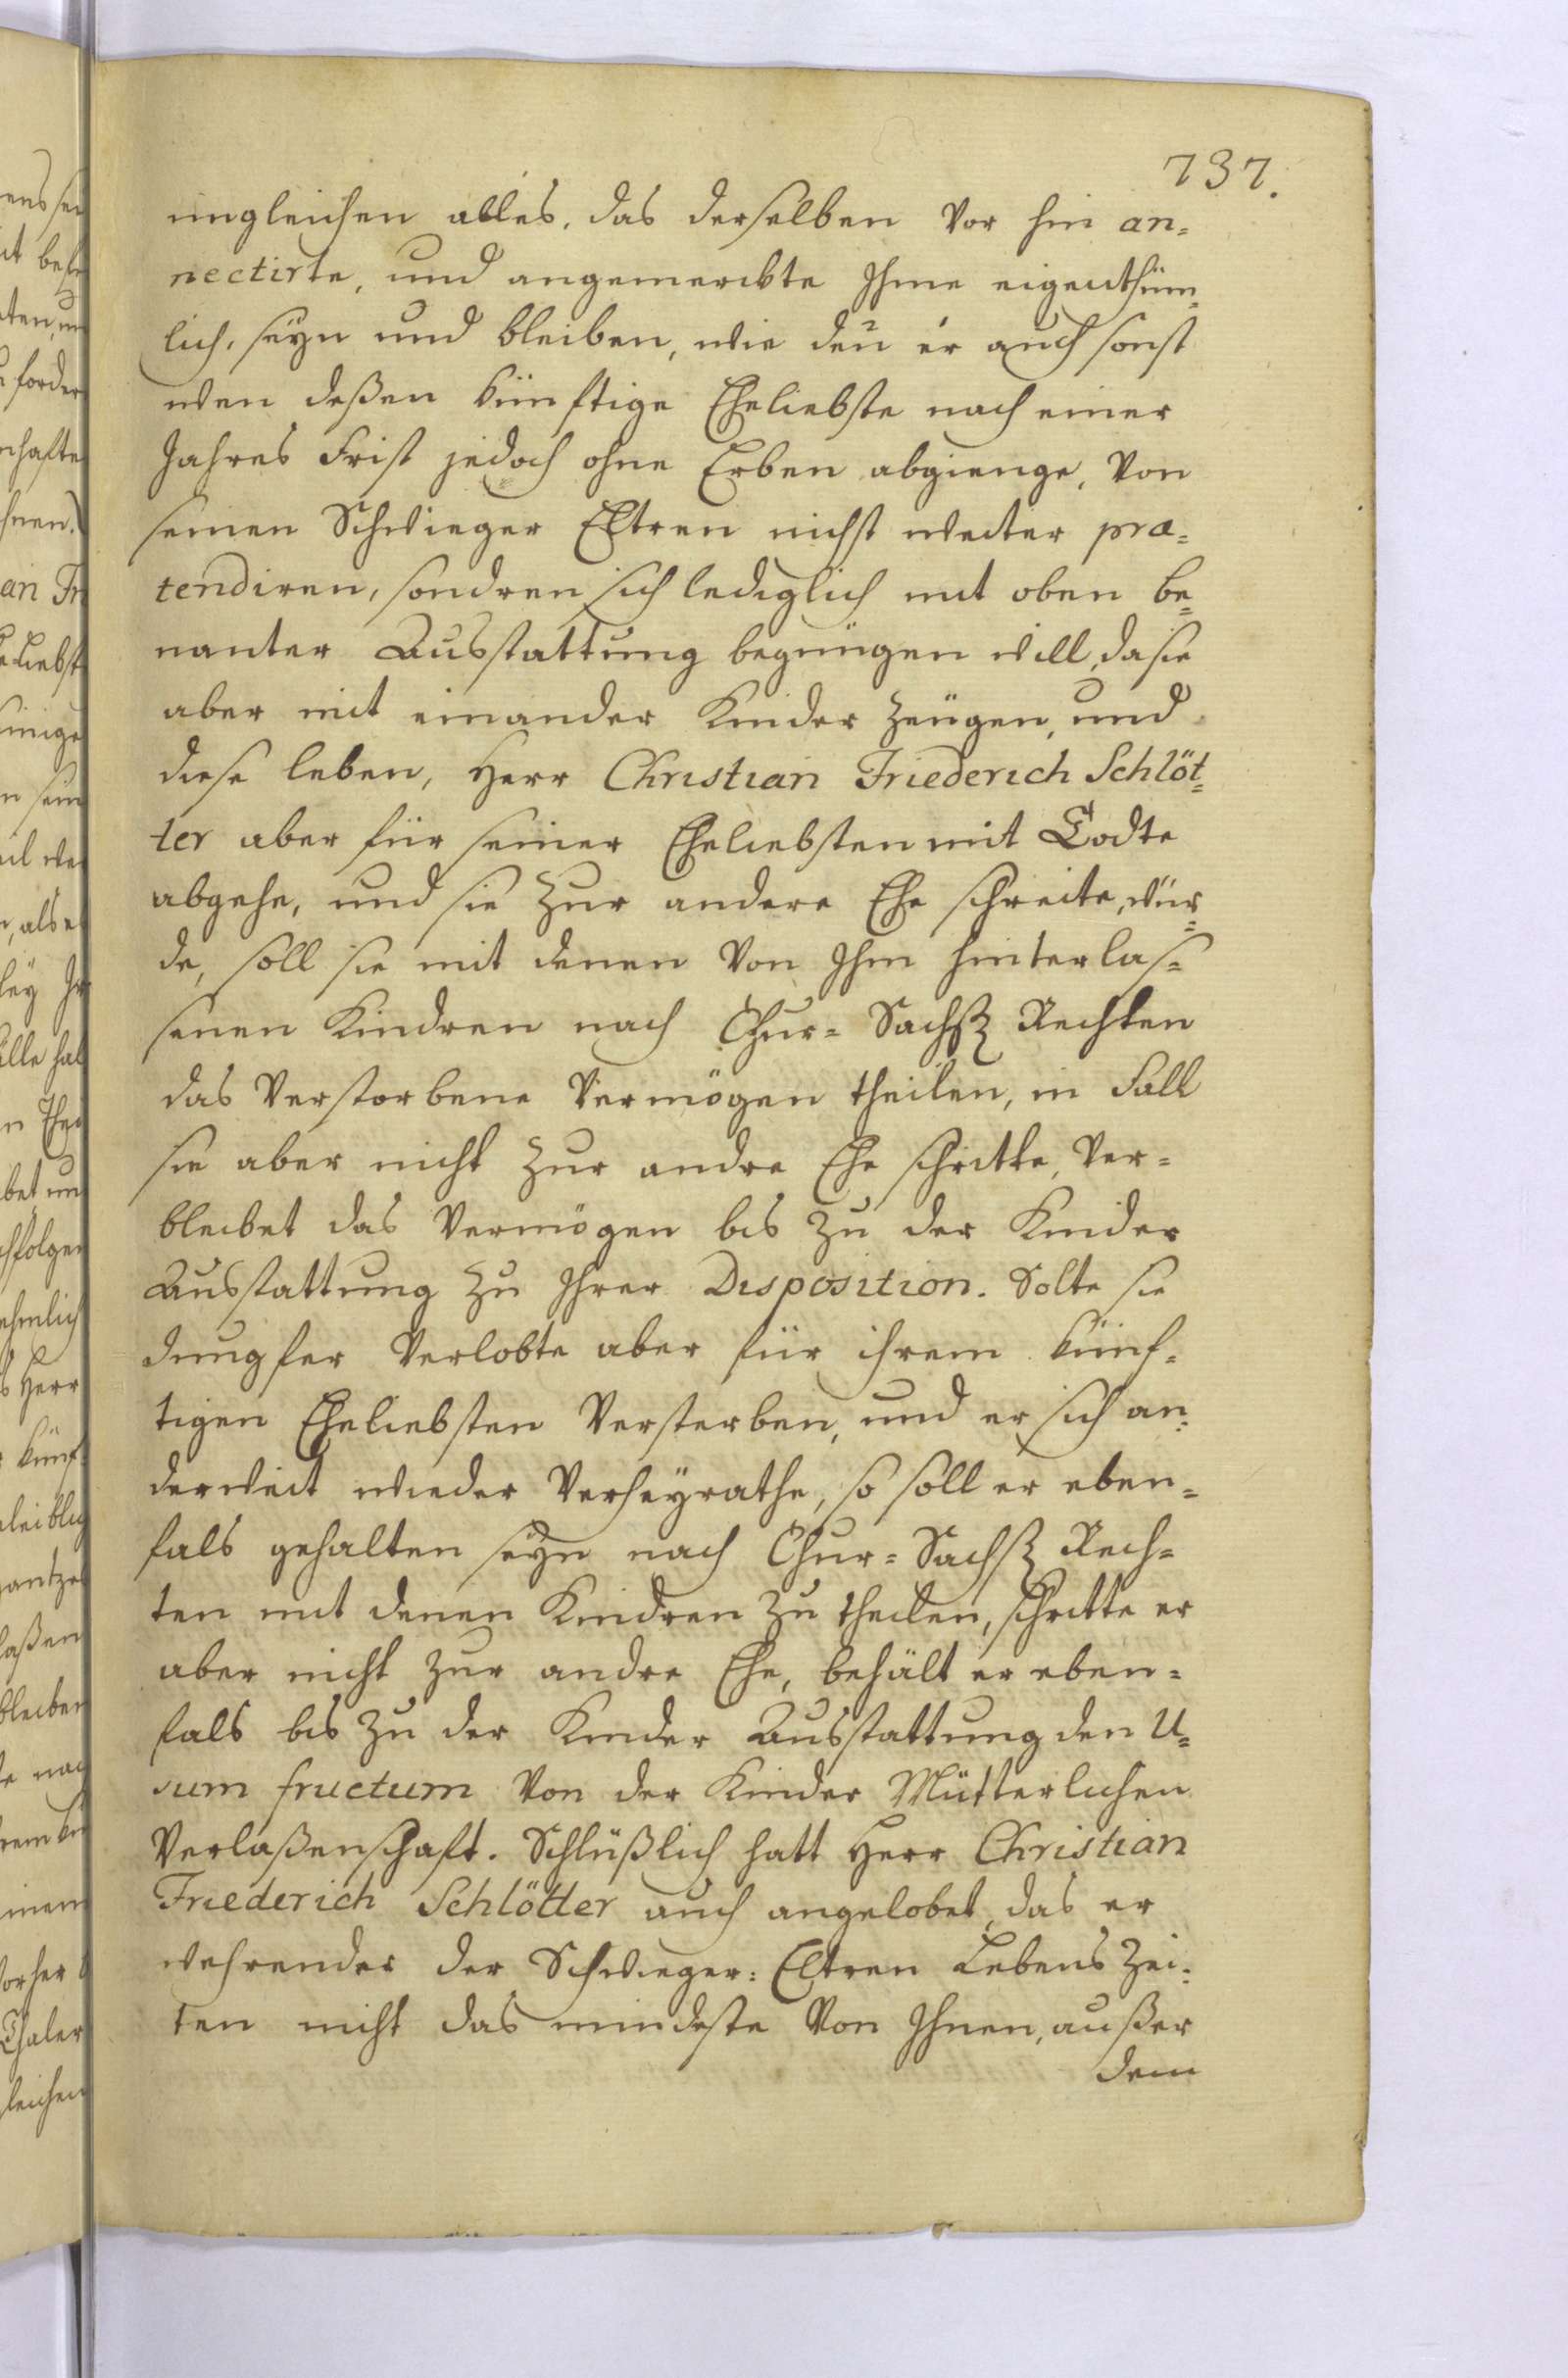 737.
imgleichen alles, das derselben vor hin an=
nectirte, und angemerckte Ihme eigenthüm=
lich, seyn und bleiben, wie deñ er auch sonst
wen deßen künftige Eheliebste nach einer
Jahres Frist jedoch ohne Erben abgienge, von
seinen Schwieger Eltren nichst weiter præ=
tendiren, sondren sich lediglich mit oben be=
nanter Ausstattung begnügen will, da sie
aber mit einander Kinder zeugen, und
diese leben, Herr Christian Friederich Schlöt=
ter aber für seiner Eheliebsten mit Todte
abgehe, und sie zur andere Ehe schreite, wür=
de, soll sie mit denen von Ihm hinterlas=
senen Kindren nach Chur= Sachß Rechten
das Verstorbene Vermögen theilen, in Fall
sie aber nicht zur andre Ehe schritte, ver=
bleibet das Vermögen bis zu der Kinder
Ausstattung zu Ihrer Disposition. Solte sie
Jungfer Verlobte aber für ihrem künf=
tigen Eheliebsten versterben, und er sich an=
derweit wieder verheyrathe, so soll er eben=
fals gehalten seyn nach Chur= Sachß Rech=
ten mit denen Kindren zu theilen, schritte er
aber nicht zur andre Ehe, behält er eben=
fals bis zu der Kinder Ausstattung den U=
sum fructum von der Kinder Mütterlichen
Verlaßenschaft. Schlüßlich hatt Herr Christian
Friederich Schlötter auch angelobet, das er
wehrender der Schwieger= Eltren Lebens Zei=
ten nicht das mindeste von Ihnen, außer
dem